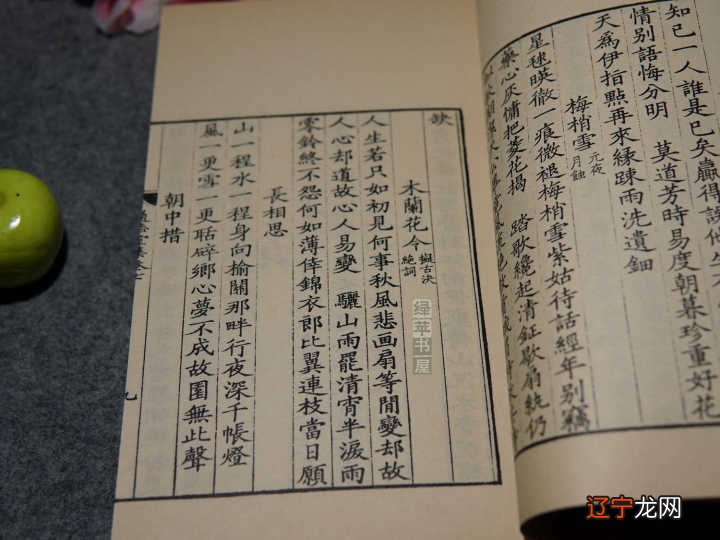 知己一人誰是已矣贏得誤他
情別語悔分明　莫道芳時易度朝暮珍重好花
天為伊指點再來緣踈雨洗遺鈿
梅梢雪 元夜月蝕
星毬映徹一痕微褪梅梢雪紫姑待話經年別竊
藥心灰慵把菱花揭　踏歌纔起清鉦歇扇紈仍
缺
木蘭花令 擬古決絕詞
人生若只如初見何事秋風悲画扇等閒變却故
人心却道故心人易變　驪山雨罷清宵半淚雨
零鈴終不怨何如薄倖錦衣郎比翼連枝當日願
長相思
山一程水一程身向榆關那畔行夜深千帳燈
風一更雪一更聒碎鄉心夢不成故園無此聲
朝中措
九
绿苹书屋
辽宁龙网